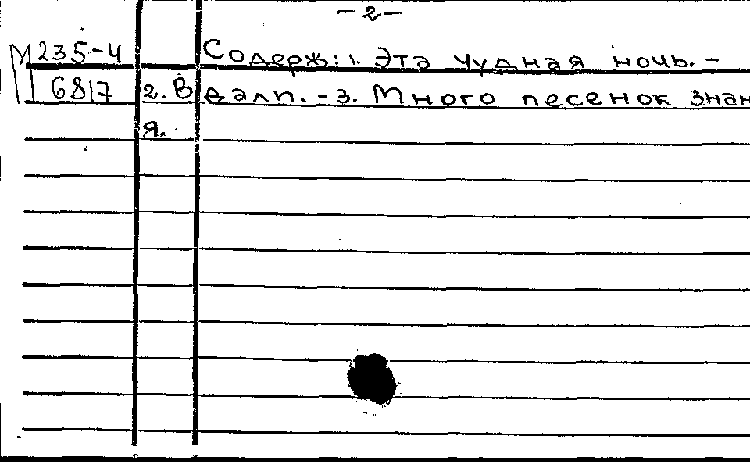 -2-
М235-4 Содерж.: 1. Эта чудная ночь. -
6817 2. В дали. - 3. Много песенок знаю
я.